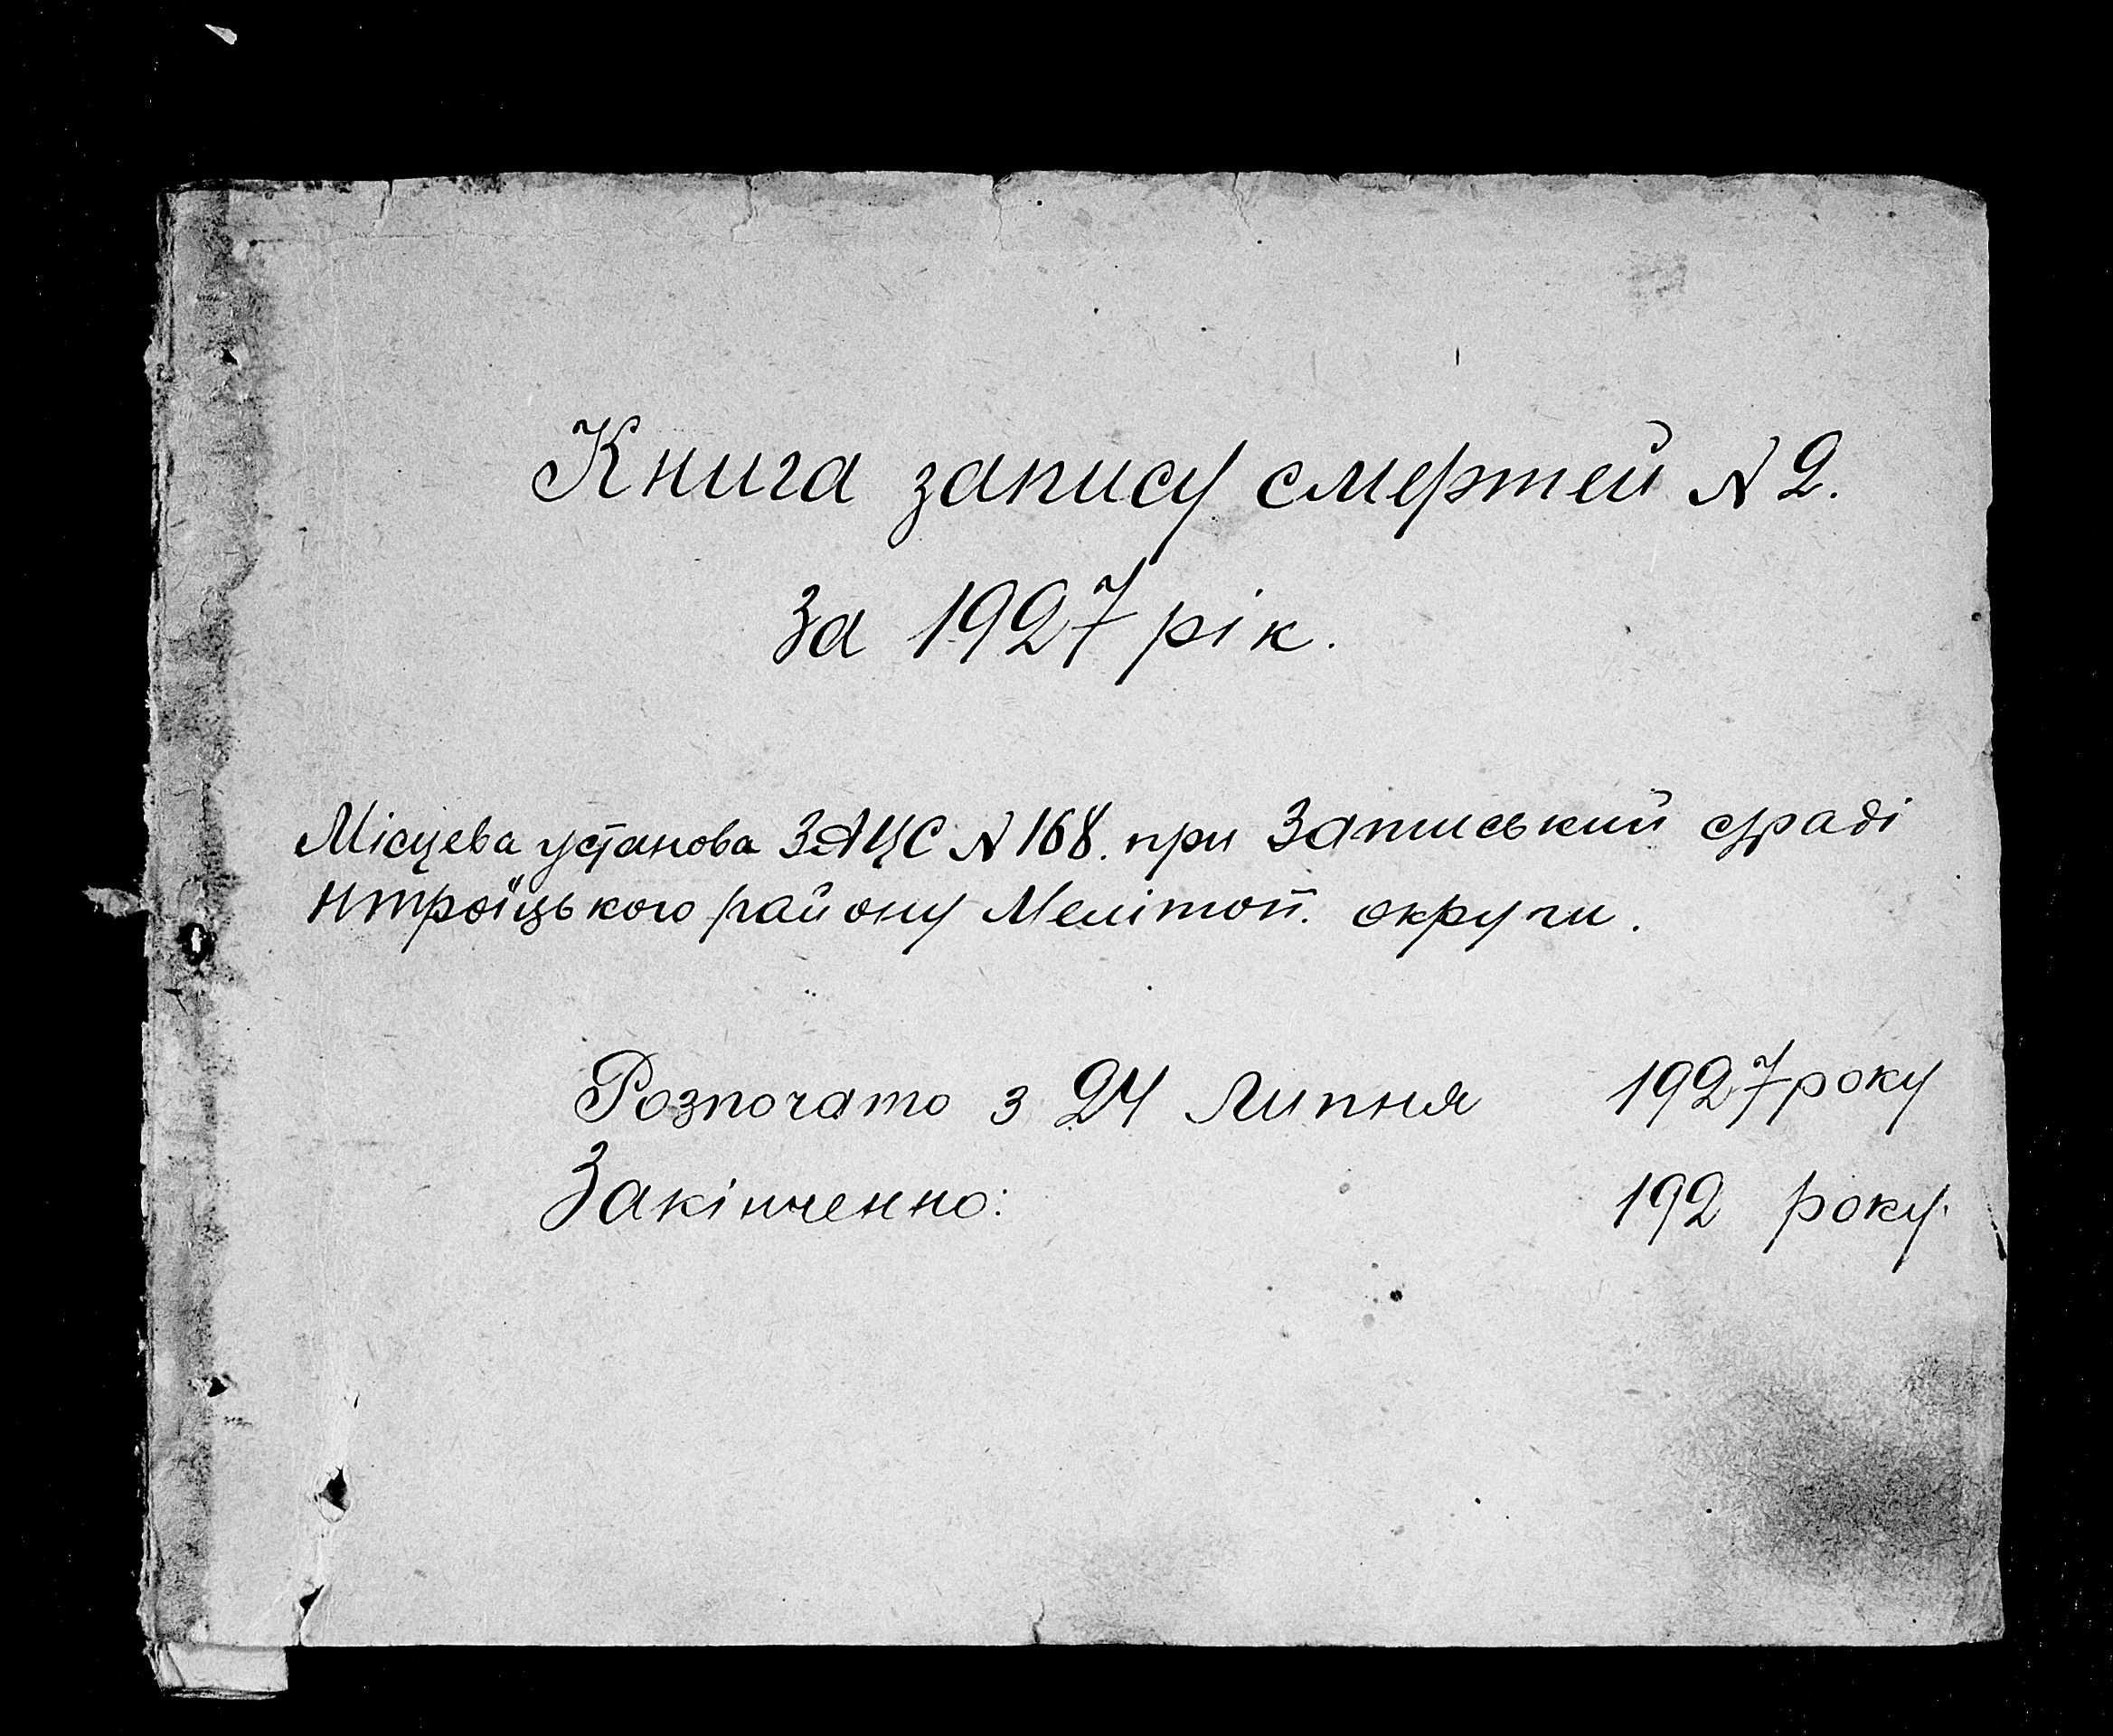 Книга запису смертей N 2.
За 1927 рік.
Місцева установа ЗАЦС N 168. при Записький с/раді
Нтроїцького району Мелітоп. округи.
Розпочато з 24 Липня 1927 року
Закінченно: 192 року.